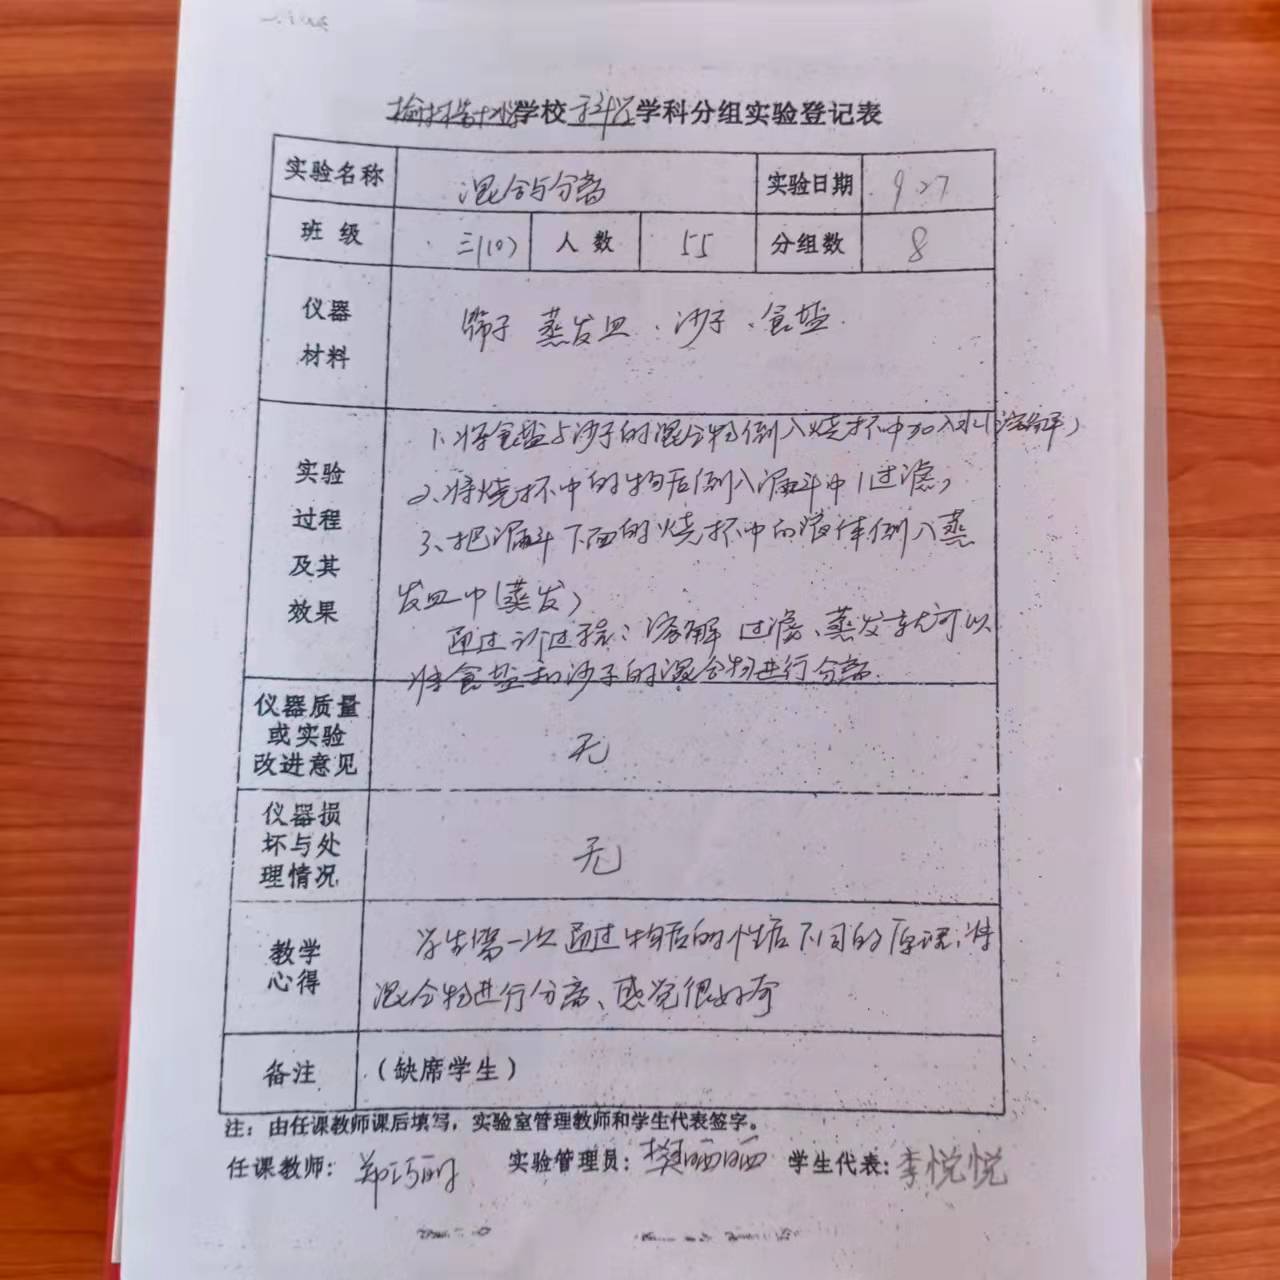 榆林第十小学学校科学学科分组实验登记表
实验名称 混合与分离 实验日期 9.27
班级 三(10) 人数 55 分组数 8
仪器材料 筛子 蒸发皿、沙子、食盐
实验过程及其效果
1、将食盐与沙子的混合物倒入烧杯中加入水(溶解)
2、将烧杯中的物质倒入漏斗中(过滤)
3、把漏斗下面的烧杯中的液体倒入蒸
发皿中(蒸发)
通过 过程:溶解 过滤、蒸发就可以
将食盐和沙子的混合物进行分离.
仪器质量或实验改进意见 无
仪器损坏与处理情况 无
教学心得
学生第一次通过物质的性质不同的原理,将
混合物进行分离、感觉很好奇
备注 (缺席学生)
注:由任课教师课后填写,实验室管理教师和学生代表签字。
任课教师:郑巧丽 实验管理员:樊晒晒 学生代表:李悦悦